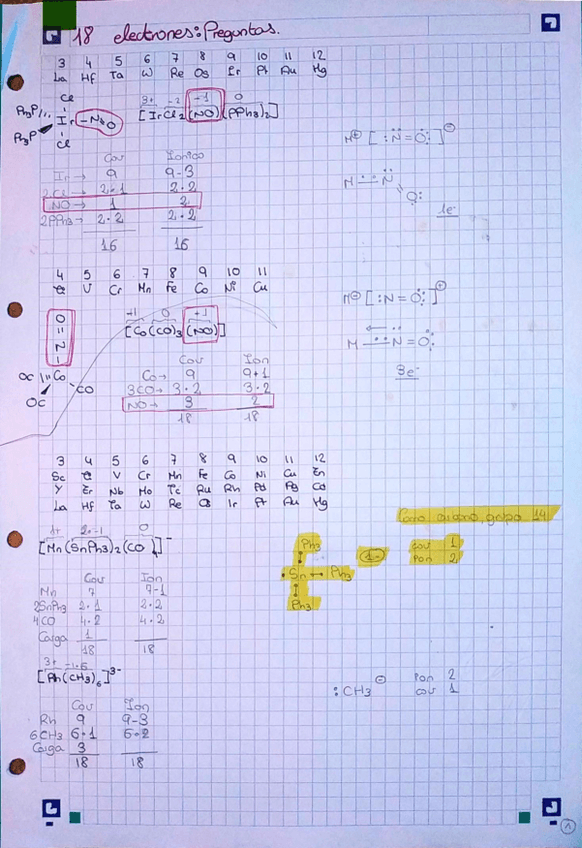 18 electrones: Preguntas.
3 4 5 6 7 8 9 10 11 12
La Hf Ta W Re Os Ir Pt Au Hg
Cl
Ph3P
Ir - N≡O
Ph3P
Cl
3+ -2 -1 0
[IrCl2(NO)(PPh3)2]
Cov Ionico
Ir → 9 9-3
2Cl → 2·1 2·2
NO → 1 2
2PPh3 → 2·2 2·2
16 16
[:N=O:]
M - N
O:
1e-
4 5 6 7 8 9 10 11
V Cr Mn Fe Co Ni Cu
O
=
N
-1 0 +1
[Co(CO)3(NO)]
OC Co CO
OC
Cov Ion
Co → 9 9+1
3CO → 3·2 3·2
NO → 3 2
18 18
[:N=O:]
M - N=O:
3e-
3 4 5 6 7 8 9 10 11 12
Sc V Cr Mn Fe Co Ni Cu Zn
Y Zr Nb Mo Tc Ru Rh Pd Ag Cd
La Hf Ta W Re Os Ir Pt Au Hg
Como carbono, grupo 14
1+ 2·-1 0
[Mn(SnPh3)2(CO)]-
Ph3
Sn Ph3
Ph3
cov 1
ion 2
Cov Ion
Mn 7 7-1
2SnPh3 2·1 2·2
4CO 4·2 4·2
Carga 1
18 18
3+ -1·6
[Rh(CH3)6]3-
:CH3 ⊖
ion 2
cov 1
Cov Ion
Rh 9 9-3
6CH3 6·1 6·2
Carga 3
18 18
1